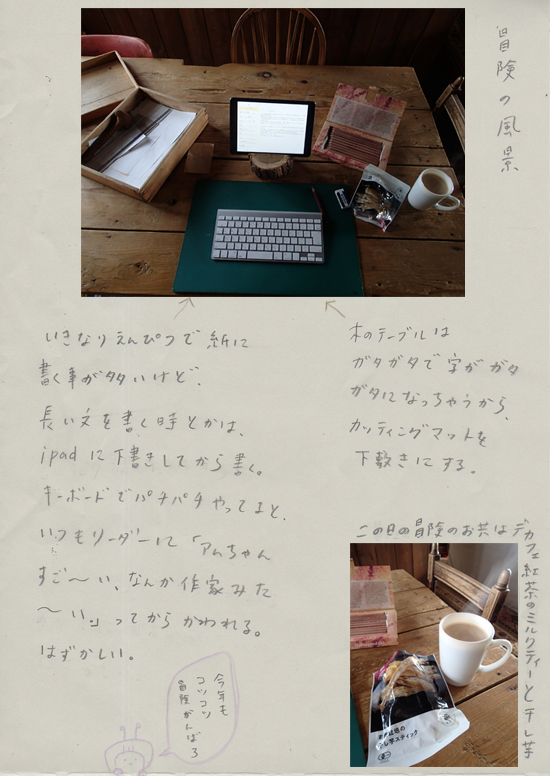 冒険の風景
いきなりえんぴつで紙に
書く事が多いけど、
長い文を書く時とかは、
ipadに下書きしてから書く。
キーボードでパチパチやってると、
いつもリーダーに「アムちゃん
すご〜い、なんか作家みた
〜い。」ってからかわれる。
はずかしい。
木のテーブルは
ガタガタで字がガタ
ガタになっちゃうから、
カッティングマットを
下敷きにする。
この日の冒険のお共はデカフェ紅茶のミルクティーと干し芋
干し芋スティック
今年も
コツコツ
冒険がんばろ